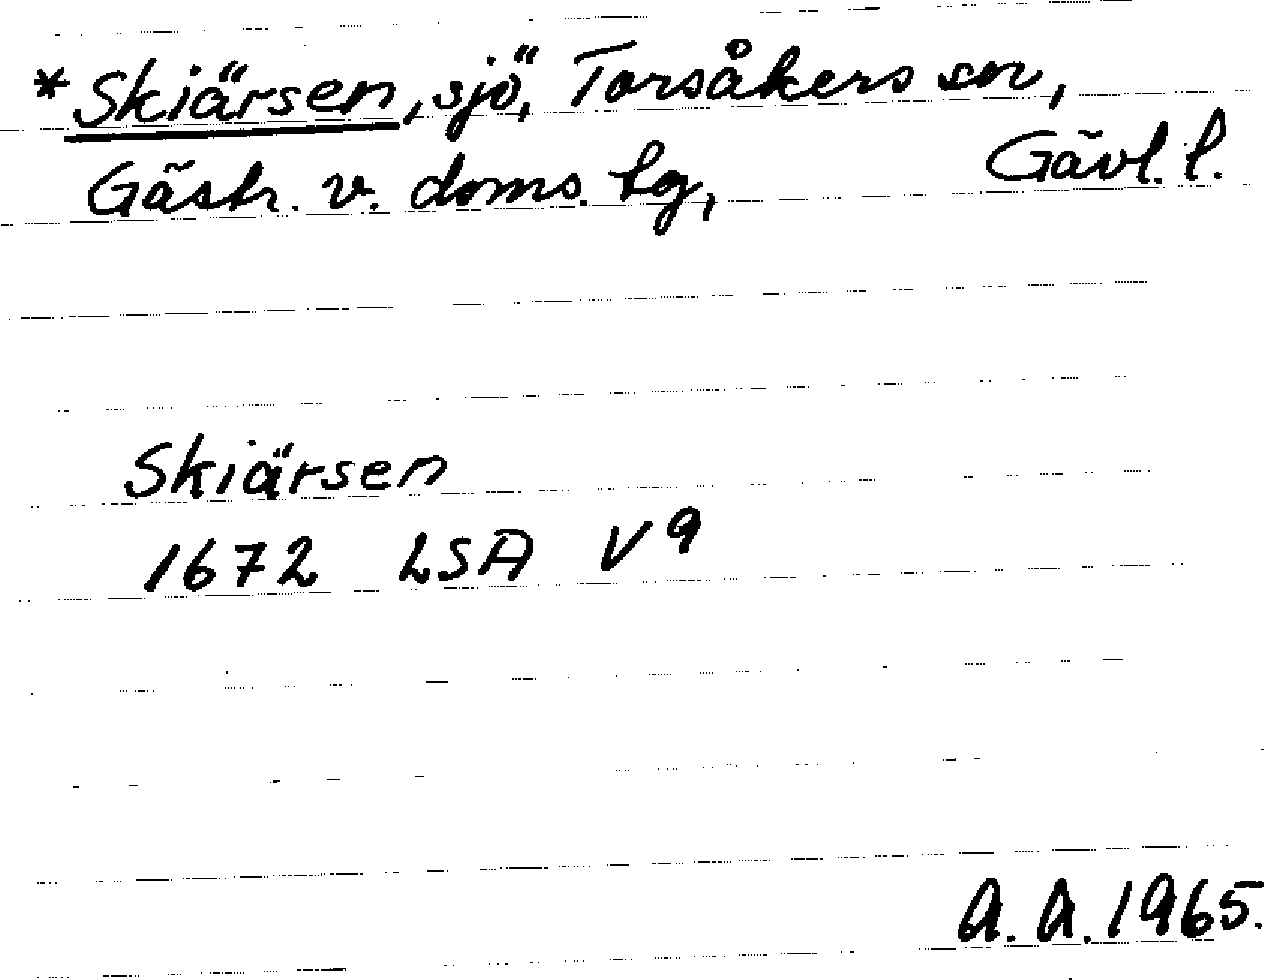 *Skiärsen, sjö, Torsåkers sn,
Gästr. v. doms. tg, Gävl. l.
Skiärsen
1672 LSA V9
A.A. 1965.